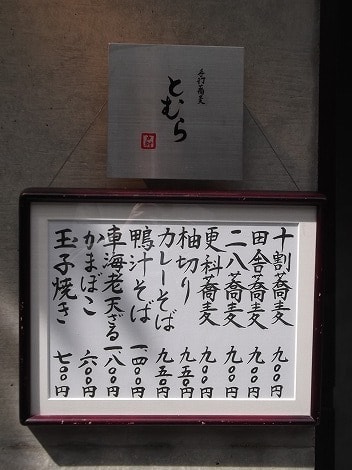 手打蕎麦
とむら
十割蕎麦 九〇〇円
田舎蕎麦 九〇〇円
二八蕎麦 九〇〇円
更科蕎麦 九〇〇円
柚切り 九五〇円
カレーそば 九五〇円
鴨汁そば 一、四〇〇円
車海老天ざる 一、八〇〇円
かまぼこ 六〇〇円
玉子焼き 七〇〇円